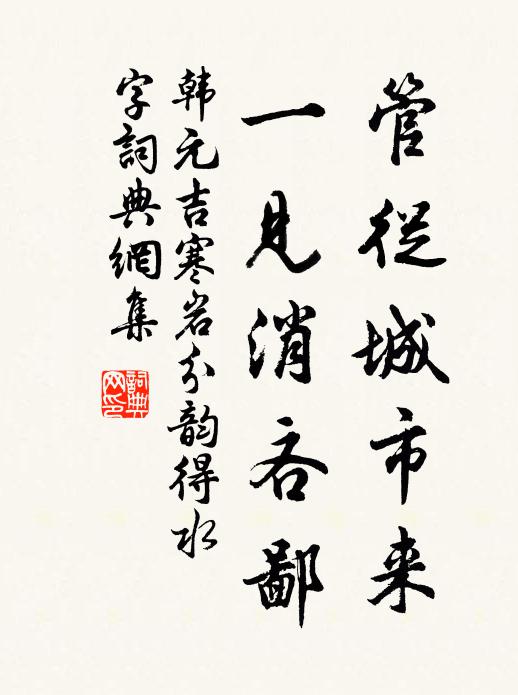 管從城市来
一見消吝鄙
韩元吉寒岩分韵得水
字詞典網集
詞典网印